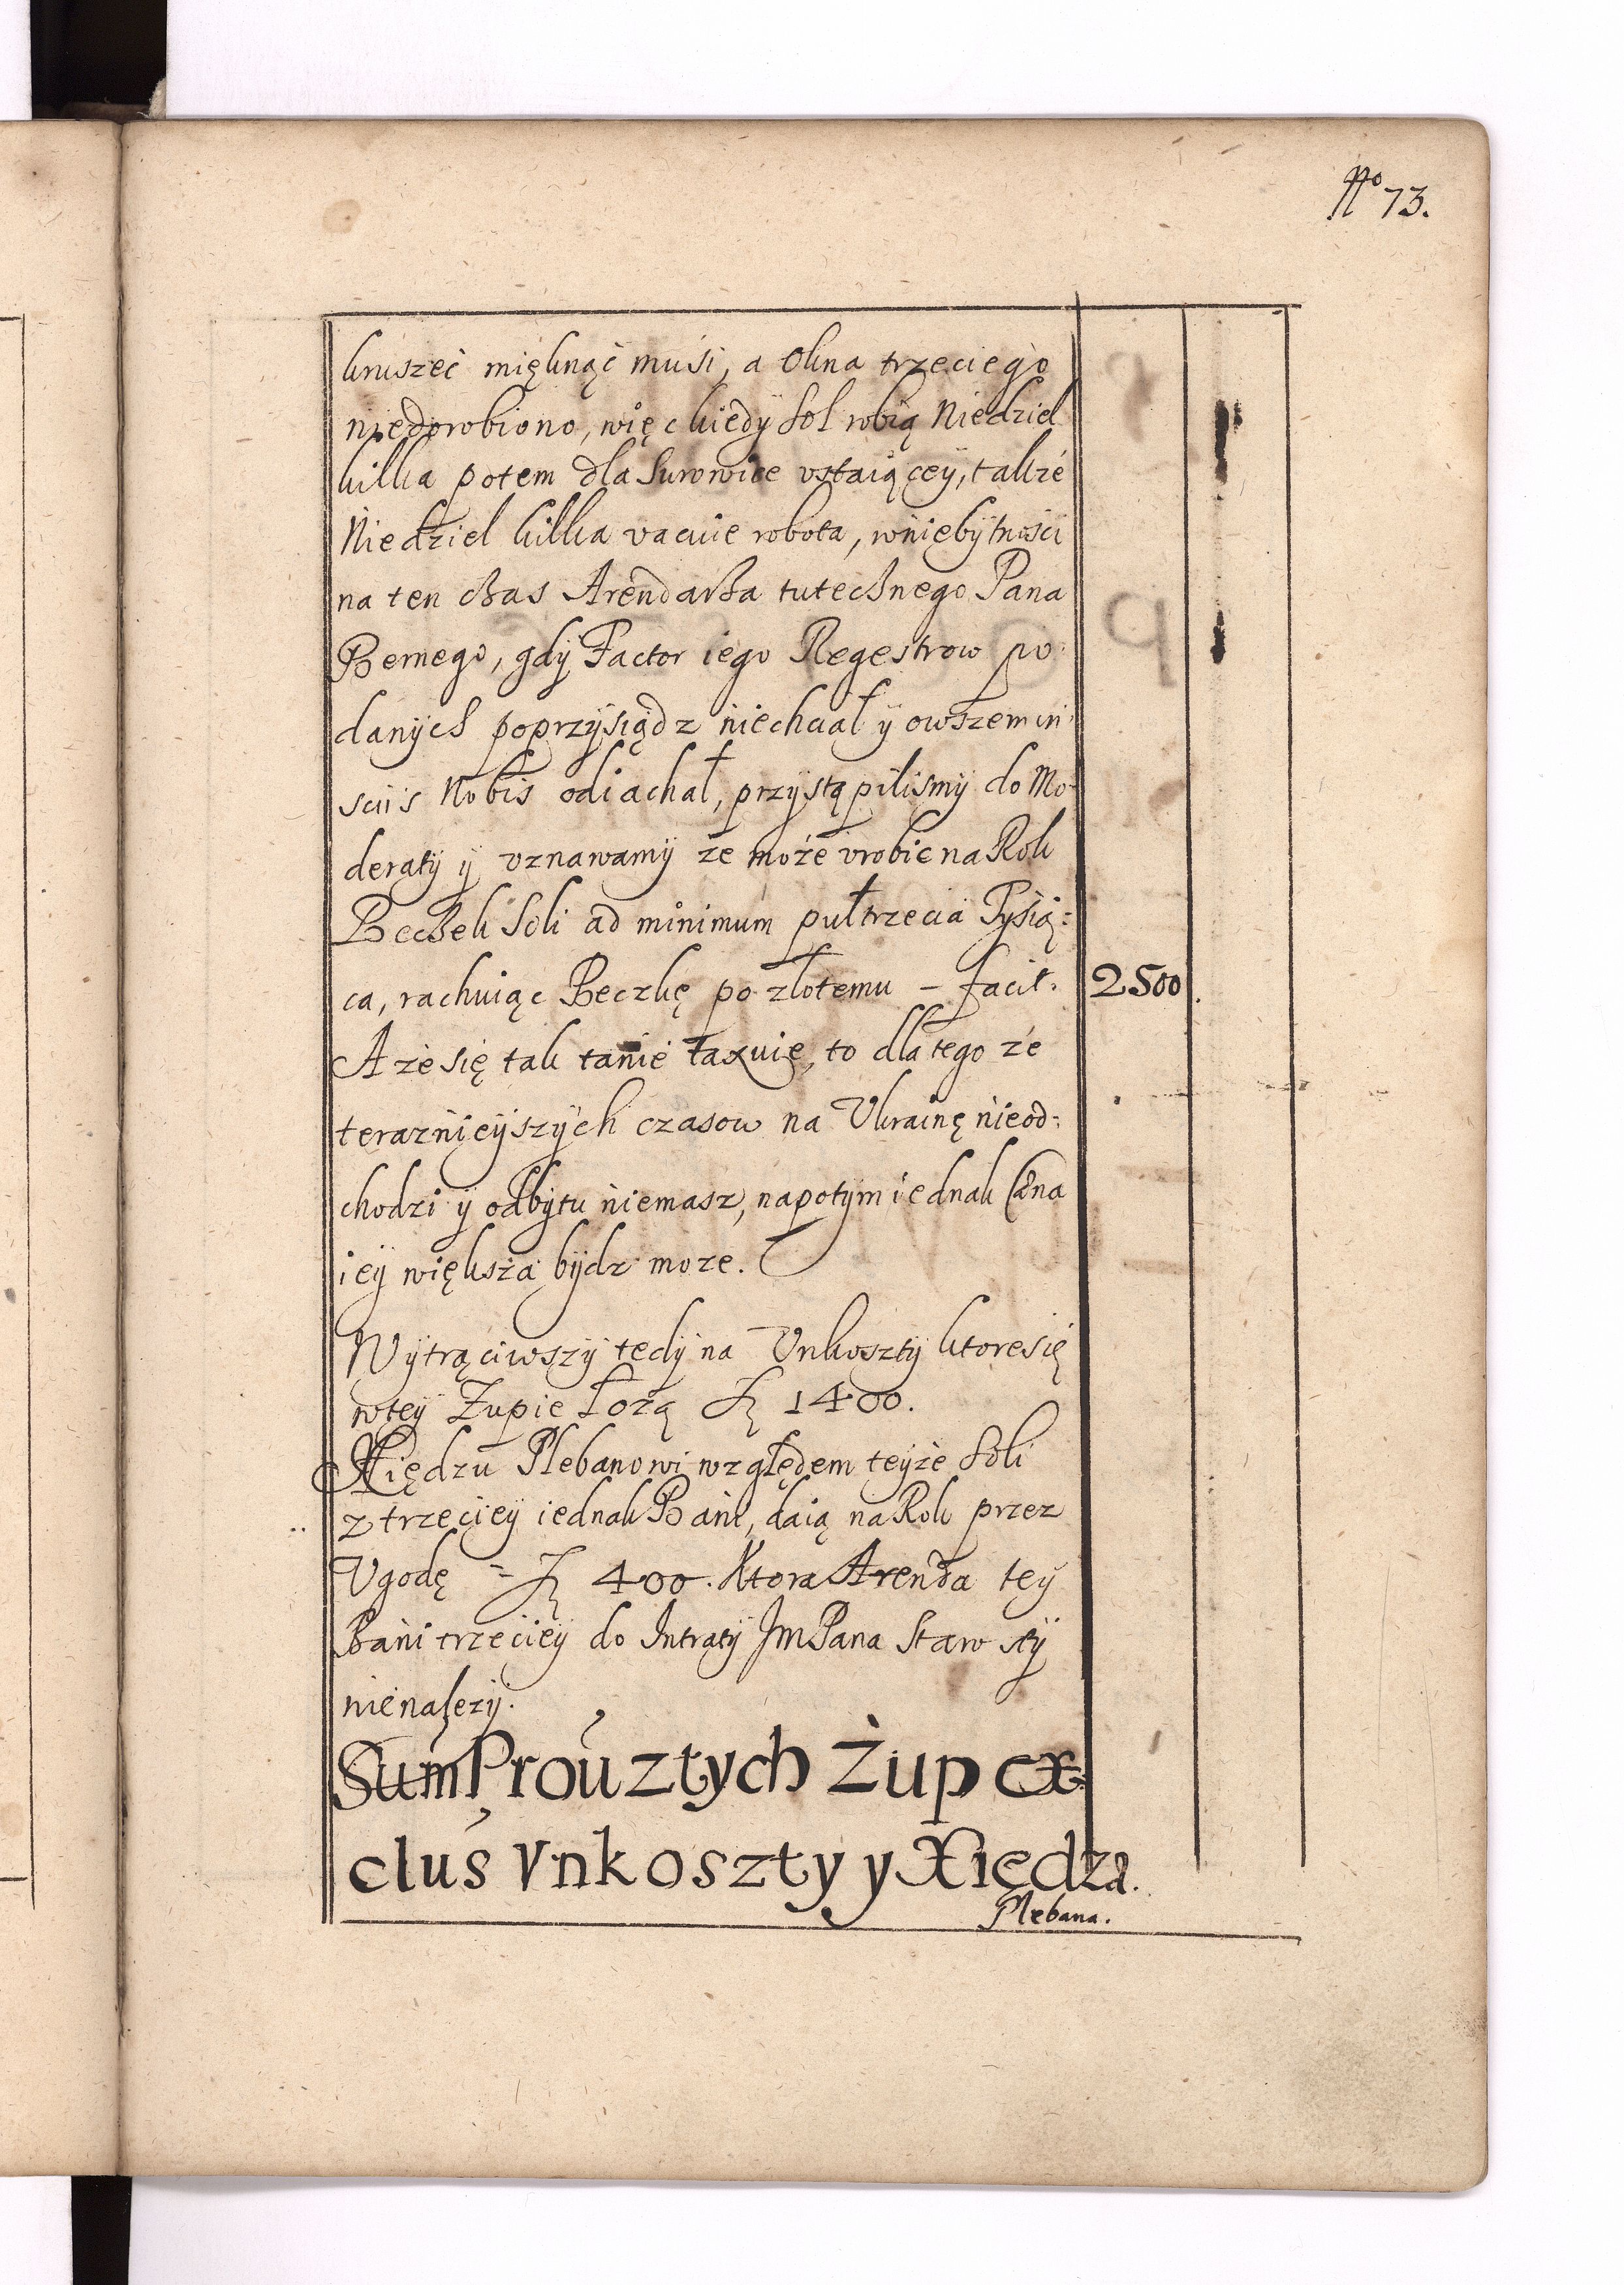 No 73.
kruszeć mięknąć musi, a Okna trzeciego
niedorobiono, więc kiedy Sol robią Niedziel
kilka potem dla Surowice vstaiącey, także
Niedziel kilka vacuie robota, wniebytnosci
na ten czas Arendarza tutecznego Pana
Bernego, gdy Factor iego Regestrow po-
danych poprzysiądz niechciał y owszem in-
sciis Nobis odiachał, przystąpilismy do Mo-
deraty y vznawamy że może vrobic na Rok
Beczek Soli ad minimum pułtrzecia Tysią-
ca, rachuiąc Beczkę po złotemu – facit. 2500.
A że się tak tanie taxuie, to dla tego że
teraznieyszych czasow na Vkrainę nieod-
chodzi y odbytu niemasz, napotym iednak Cena
iey większa bydz może.
Wytrąciwszy tedy na Vnkoszty ktore się
wtey Żupie łożą Fl 1400.
Xiędzu Plebanowi względem teyże Soli
z trzeciey iednak Bani, daią na Rok przez
Vgodę – Fl 400. Ktora Arenda tey
Bani trzeciey do Intraty Jm Pana Starosty
nienależy.
Sum Prou z tych Żup ex-
clus Vnkoszty y Xiędza.
Plebana.